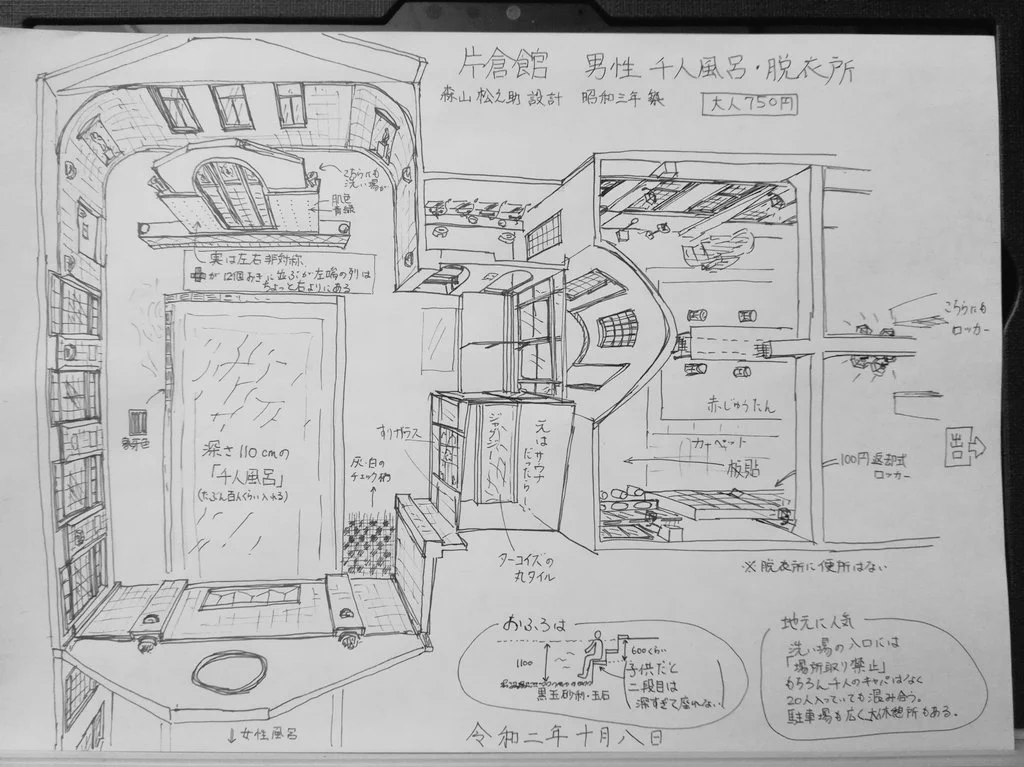 片倉館 男性 千人風呂・脱衣所
森山松之助 設計 昭和三年 築 大人750円
こちらにも
洗い場が
肌色
青緑
実は左右非対称、
が12個おきに並ぶが左端の列は
ちょっと右よりにある
こちらにも
ロッカー
赤じゅうたん
カーペット
板貼
100円返却式
ロッカー
出口
すりガラス
ジャグジー
元はサウナ
だったらしい
深さ110cmの
「千人風呂」
(たぶん百人くらい入れる)
象牙色
灰・白の
チェック柄
ターコイズの
丸タイル
※脱衣所に便所はない
おふろは
1100
600くらい
黒玉砂利・玉石
子供だと
二段目は
深すぎて座れない
地元に人気
洗い場の入口には
「場所取り禁止」
もちろん千人のキャパはなく
20人入っていても混み合う。
駐車場も広く大休憩所もある。
↓女性風呂
令和二年十月八日